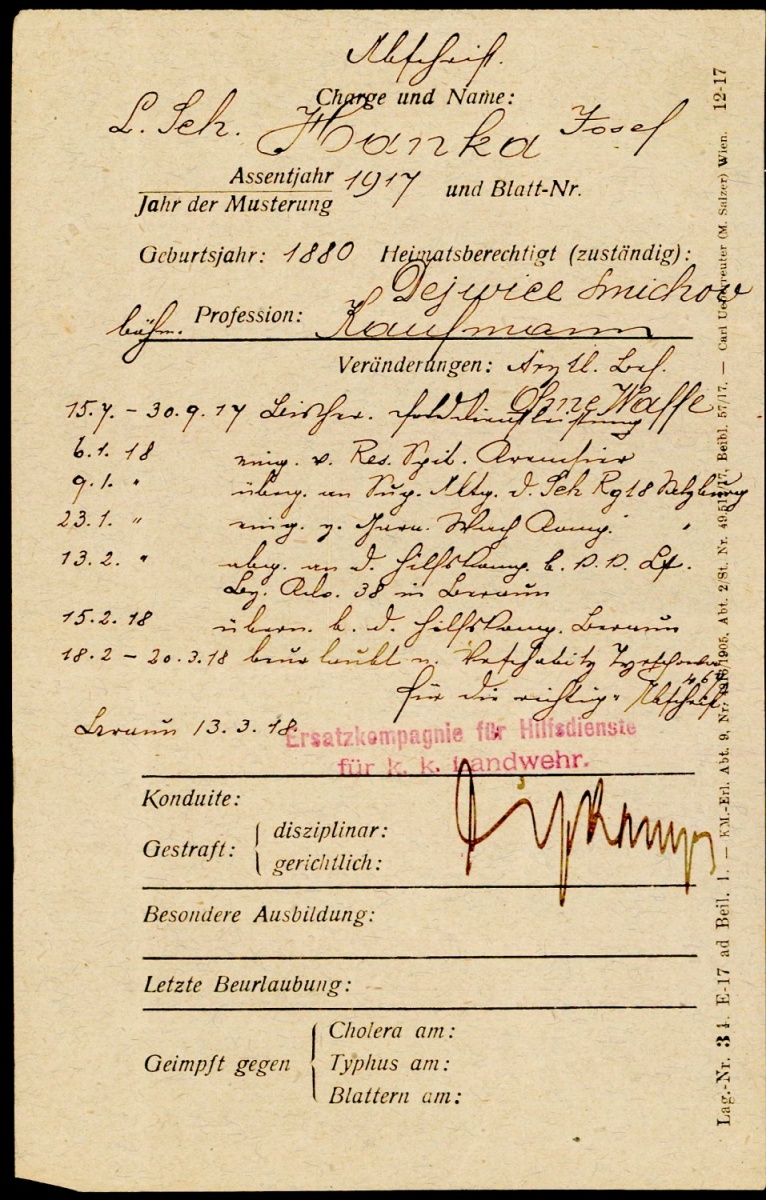 Abschrift.
Charge und Name:
L. Sch. Hanka Josef
Assentjahr
Jahr der Musterung 1917 und Blatt-Nr.
Geburtsjahr: 1880 Heimatsberechtigt (zuständig):
Dejwice Smichow
böhm. Profession: Kaufmann
Veränderungen: Arztl. Bef.
Ohne Waffe
15.7. - 30.9.17
6.1.18 eing. v. Res. Spit.
9.1. " überg. an d. Sch Rg 18
23.1. " eing. z. Wach Komp. "
13.2. " abg. an d. Hilfskomp. b.
38 in Beraun
15.2.18 übern. b. d. Hilfskomp. Beraun
18.2 - 20.3.18 beurlaubt n.
für die richtige Abschrift
Beraun 13.3.18.
Ersatzkompagnie für Hilfsdienste
für k. k. Landwehr.
Konduite:
Gestraft: disziplinar:
gerichtlich:
Besondere Ausbildung:
Letzte Beurlaubung:
Geimpft gegen Cholera am:
Typhus am:
Blattern am:
Lag.-Nr. 34. E-17 ad Beil. 1. — KM.-Erl. Abt. 9, Nr. 1905, Abt. 2/St. Nr. Beibl. 57/17. — Carl Ueberreuter (M. Salzer) Wien. 12-17